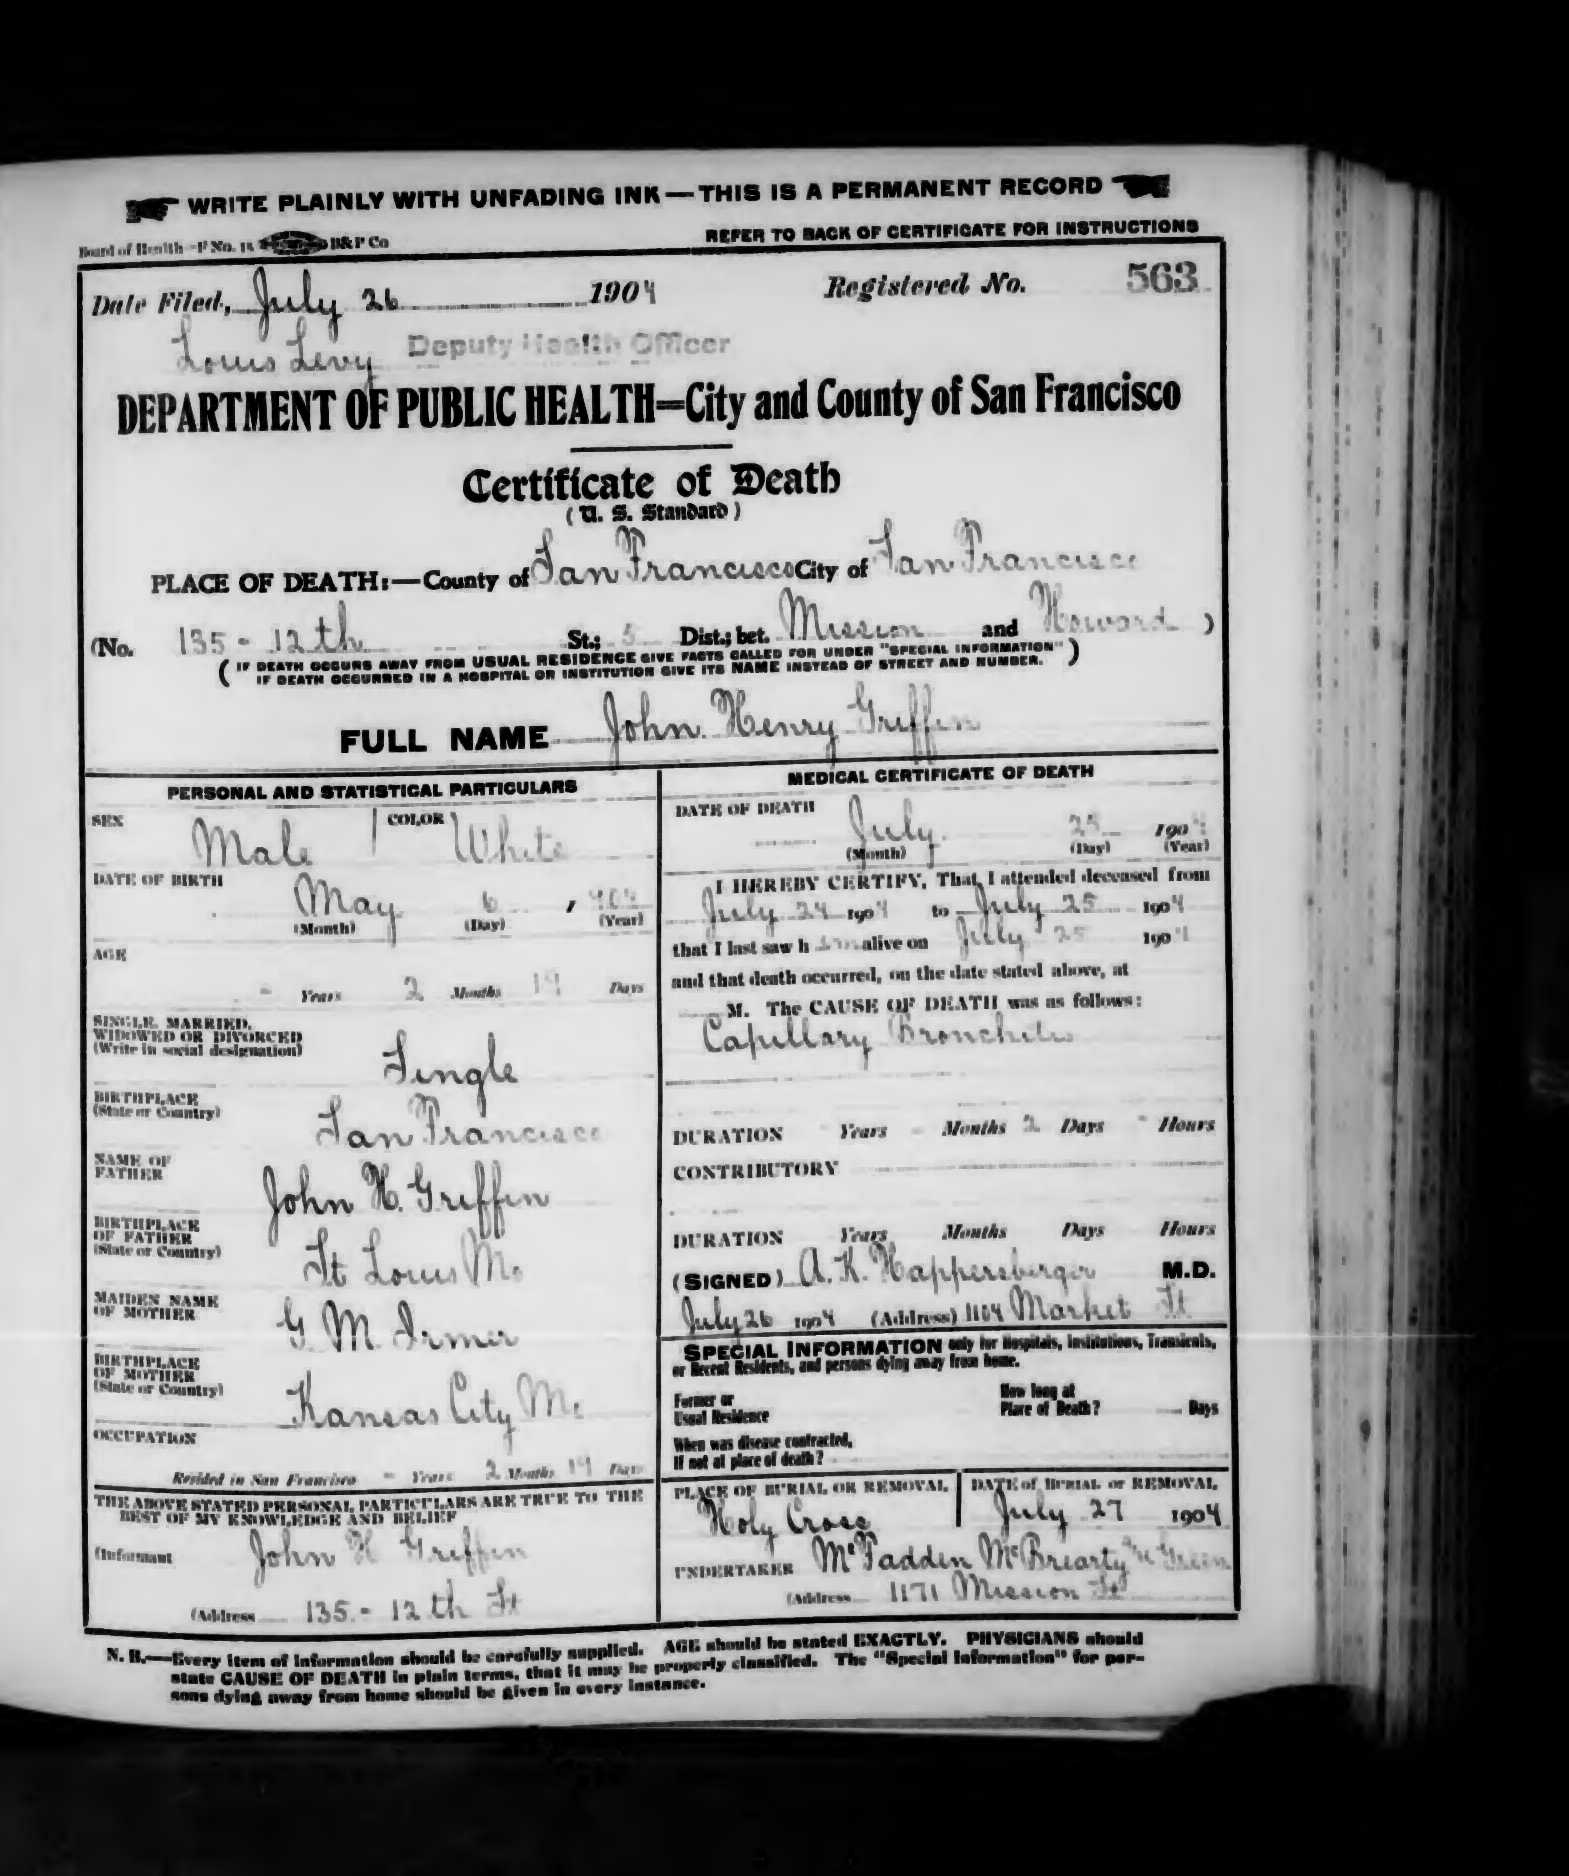 WRITE PLAINLY WITH UNFADING INK — THIS IS A PERMANENT RECORD
Board of Health—F No. 1 B&P Co
REFER TO BACK OF CERTIFICATE FOR INSTRUCTIONS
Date Filed, July 26 1904 Registered No. 563
Louis Levy Deputy Health Officer
DEPARTMENT OF PUBLIC HEALTH=City and County of San Francisco
Certificate of Death
(U. S. Standard)
PLACE OF DEATH:—County of San Francisco City of San Francisco
(No. 135 - 12th St.; 5 Dist.; bet. Mission and Howard )
( IF DEATH OCCURS AWAY FROM USUAL RESIDENCE GIVE FACTS CALLED FOR UNDER "SPECIAL INFORMATION" )
IF DEATH OCCURRED IN A HOSPITAL OR INSTITUTION GIVE ITS NAME INSTEAD OF STREET AND NUMBER.
FULL NAME John Henry Griffin
PERSONAL AND STATISTICAL PARTICULARS
SEX Male COLOR White
DATE OF BIRTH
May 6 , 904
(Month) (Day) (Year)
AGE
- Years 2 Months 19 Days
SINGLE, MARRIED,
WIDOWED OR DIVORCED
(Write in social designation)
Single
BIRTHPLACE
(State or Country)
San Francisco
NAME OF
FATHER
John H. Griffin
BIRTHPLACE
OF FATHER
(State or Country)
St Louis Mo
MAIDEN NAME
OF MOTHER
G. M. Irmer
BIRTHPLACE
OF MOTHER
(State or Country)
Kansas City Mo
OCCUPATION
Resided in San Francisco - Years 2 Months 19 Days
THE ABOVE STATED PERSONAL PARTICULARS ARE TRUE TO THE
BEST OF MY KNOWLEDGE AND BELIEF
(Informant John H Griffin
(Address 135 - 12th St
MEDICAL CERTIFICATE OF DEATH
DATE OF DEATH
July 25 1904
(Month) (Day) (Year)
I HEREBY CERTIFY, That I attended deceased from
July 24 1904 to July 25 1904
that I last saw him alive on July 25 1904
and that death occurred, on the date stated above, at
M. The CAUSE OF DEATH was as follows:
Capillary Bronchitis
DURATION - Years - Months 2 Days - Hours
CONTRIBUTORY
DURATION Years Months Days Hours
(SIGNED) A. K. Happersberger M.D.
July 26 1904 (Address) 1104 Market St
SPECIAL INFORMATION only for Hospitals, Institutions, Transients,
or Recent Residents, and persons dying away from home.
Former or
Usual Residence
How long at
Place of Death? Days
When was disease contracted,
If not at place of death?
PLACE OF BURIAL OR REMOVAL
Holy Cross
DATE of BURIAL or REMOVAL
July 27 1904
UNDERTAKER McFadden McBrearty & Green
(Address 1171 Mission St
N. B.—Every item of information should be carefully supplied. AGE should be stated EXACTLY. PHYSICIANS should
state CAUSE OF DEATH in plain terms, that it may be properly classified. The "Special Information" for per-
sons dying away from home should be given in every instance.